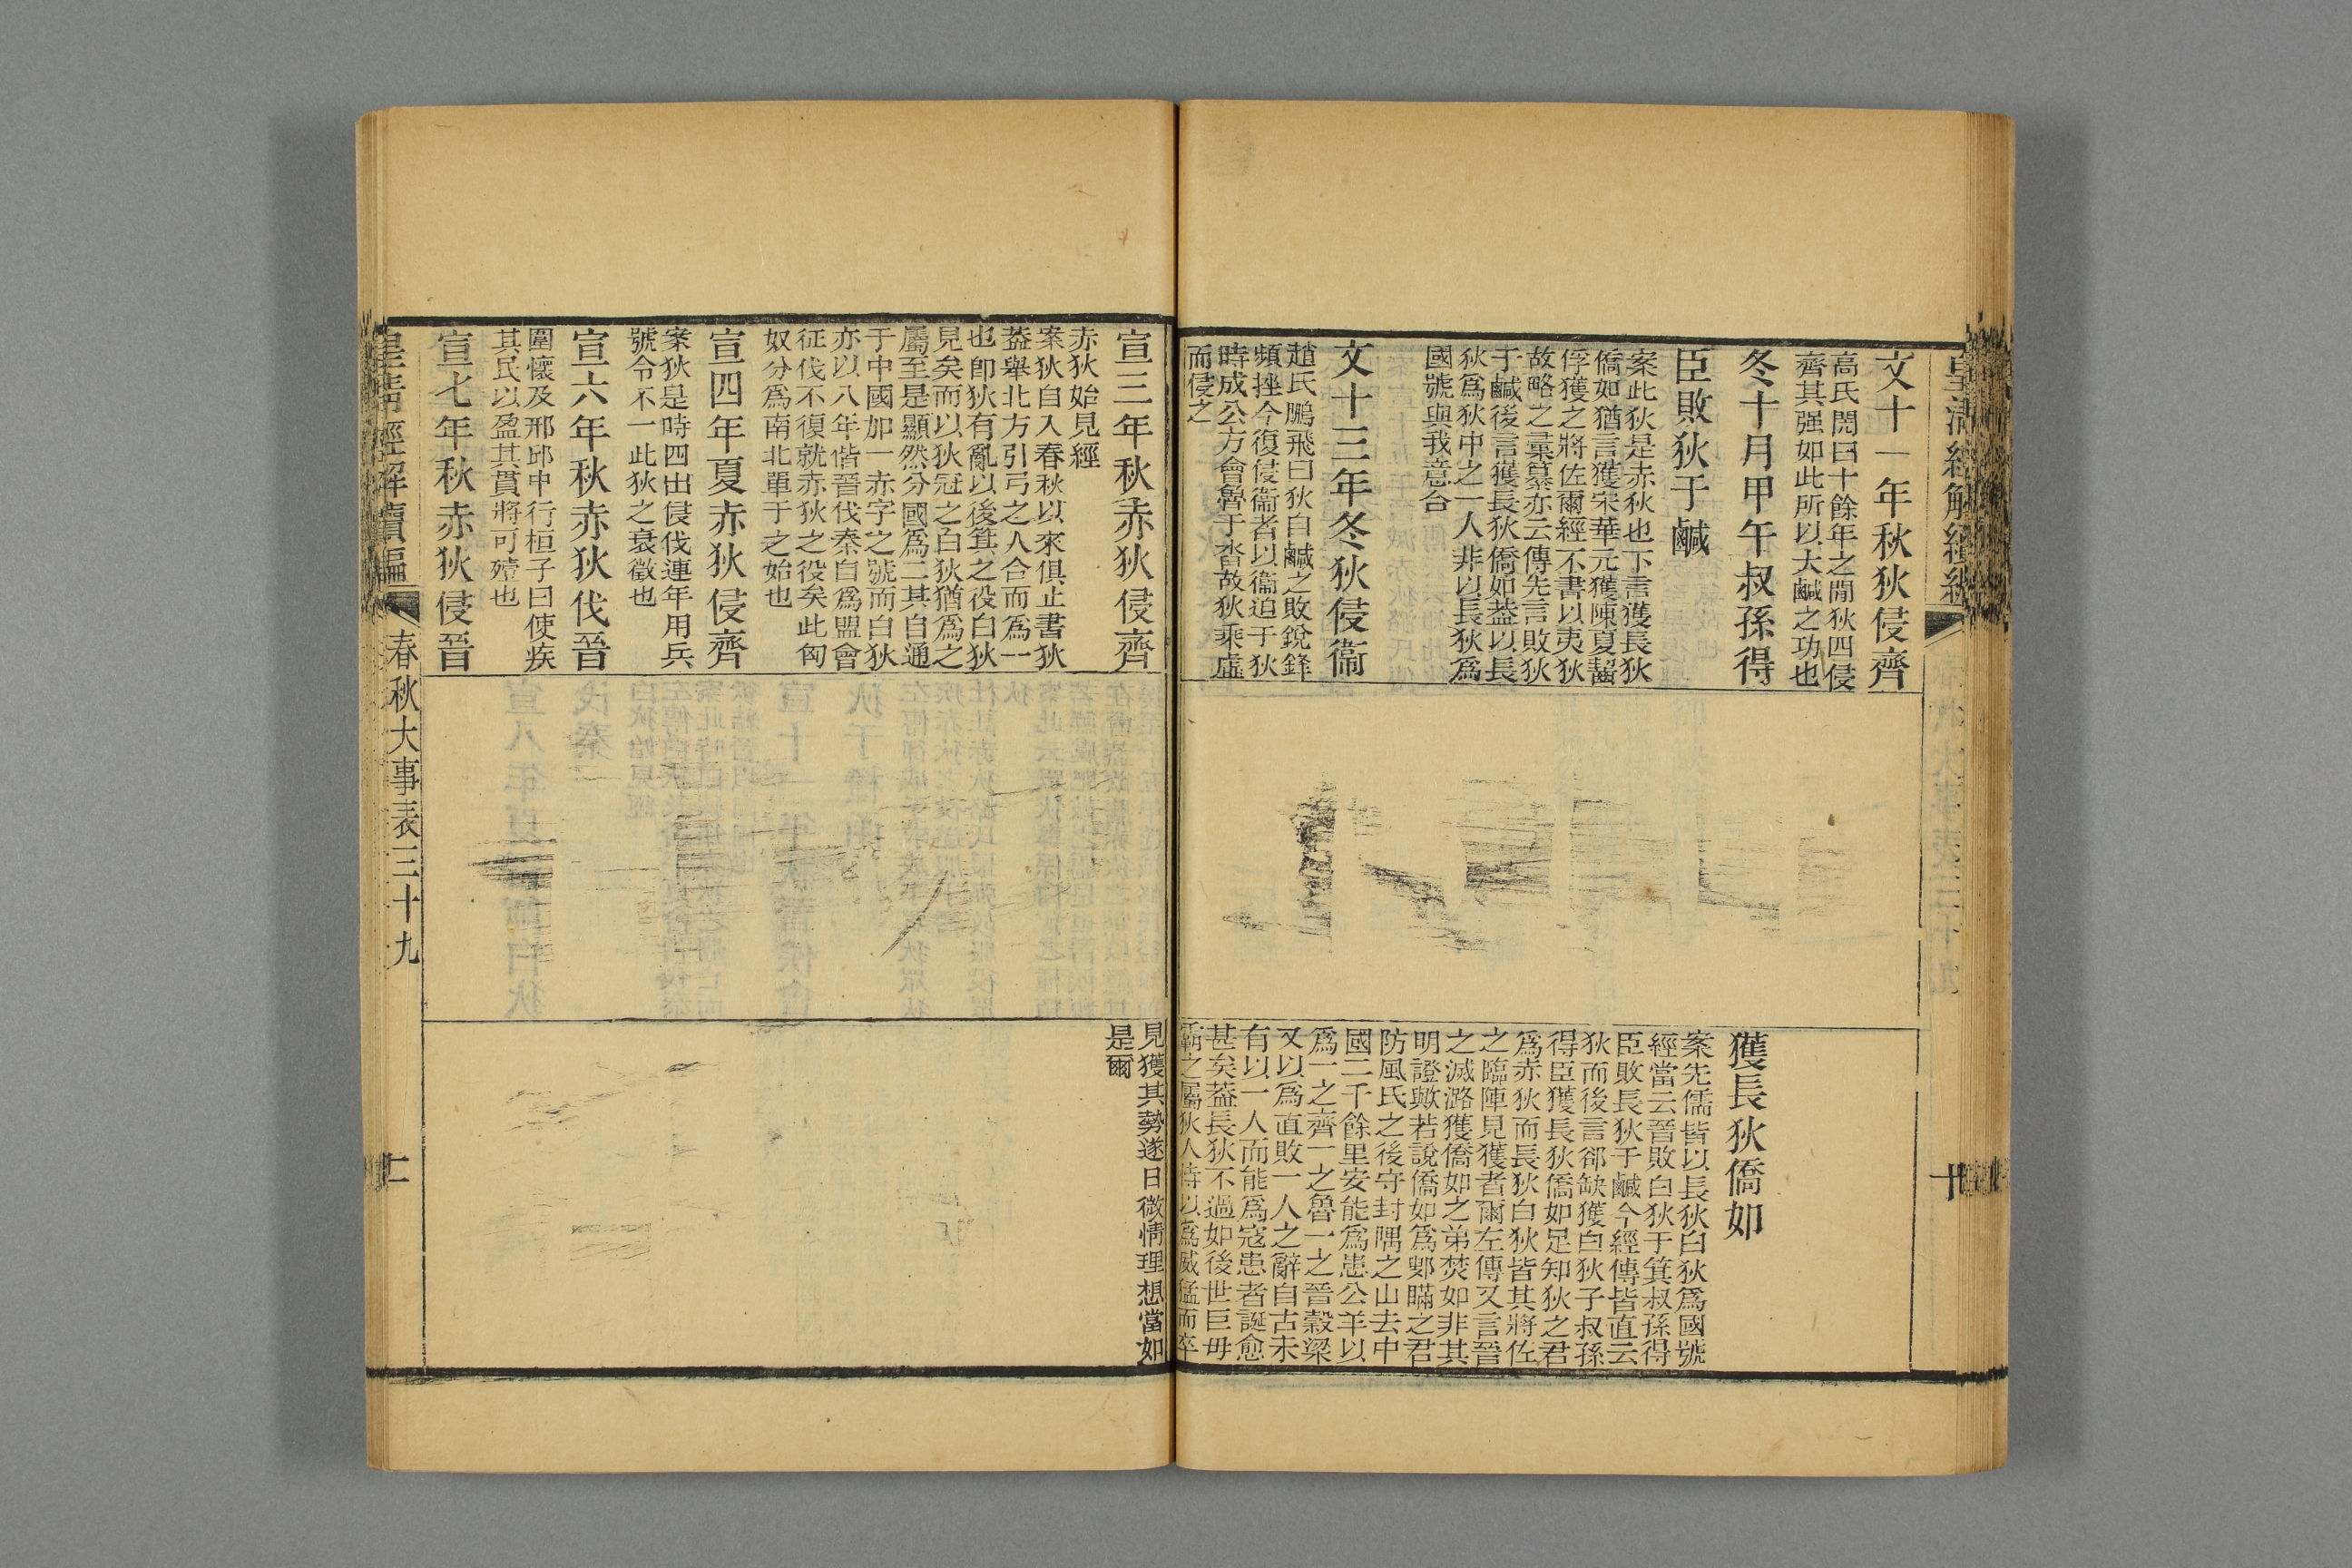 文十一年秋狄侵齊
高氏閌曰十餘年之閒狄四侵
齊其强如此所以大鹹之功也
冬十月甲午叔孫得
臣敗狄于鹹
案此狄是赤狄也下言獲長狄
僑如猶言獲宋華元獲陳夏齧
俘獲之將佐爾經不書以夷狄
故略之彙纂亦云傳先言敗狄
于鹹後言獲長狄僑如葢以長
狄爲狄中之一人非以長狄爲
國號與我意合
文十三年冬狄侵衞
趙氏鵬飛曰狄自鹹之敗銳鋒
頻挫今復侵衞者以衞迫于狄
時成公方會魯于沓故狄乘虛
而侵之
獲長狄僑如
案先儒皆以長狄白狄爲國號
經當云晉敗白狄于箕叔孫得
臣敗長狄于鹹今經傳皆直云
狄而後言郤缺獲白狄子叔孫
得臣獲長狄僑如足知狄之君
爲赤狄而長狄白狄皆其將佐
之臨陣見獲者爾左傳又言晉
之滅潞獲僑如之弟焚如非其
明證歟若說僑如爲鄋瞞之君
防風氏之後守封隅之山去中
國二千餘里安能爲患公羊以
爲一之齊一之魯一之晉榖梁
又以爲直敗一人之辭自古未
有以一人而能爲寇患者誕愈
甚矣葢長狄不過如後世巨毋
霸之屬狄人恃以爲威猛而卒
宣三年秋赤狄侵齊
赤狄始見經
案狄自入春秋以來俱止書狄
葢舉北方引弓之人合而爲一
也卽狄有亂以後箕之役白狄
見矣而以狄冠之白狄猶爲之
屬至是顯然分國爲二其自通
于中國加一赤字之號而白狄
亦以八年偕晉伐秦自爲盟會
征伐不復就赤狄之役矣此匈
奴分爲南北單于之始也
宣四年夏赤狄侵齊
案狄是時四出侵伐連年用兵
號令不一此狄之衰徵也
宣六年秋赤狄伐晉
圍懷及邢邱中行桓子曰使疾
其民以盈其貫將可殪也
宣七年秋赤狄侵晉
見獲其勢遂日微情理想當如
是爾
皇淸經解續編
春秋大事表三十九